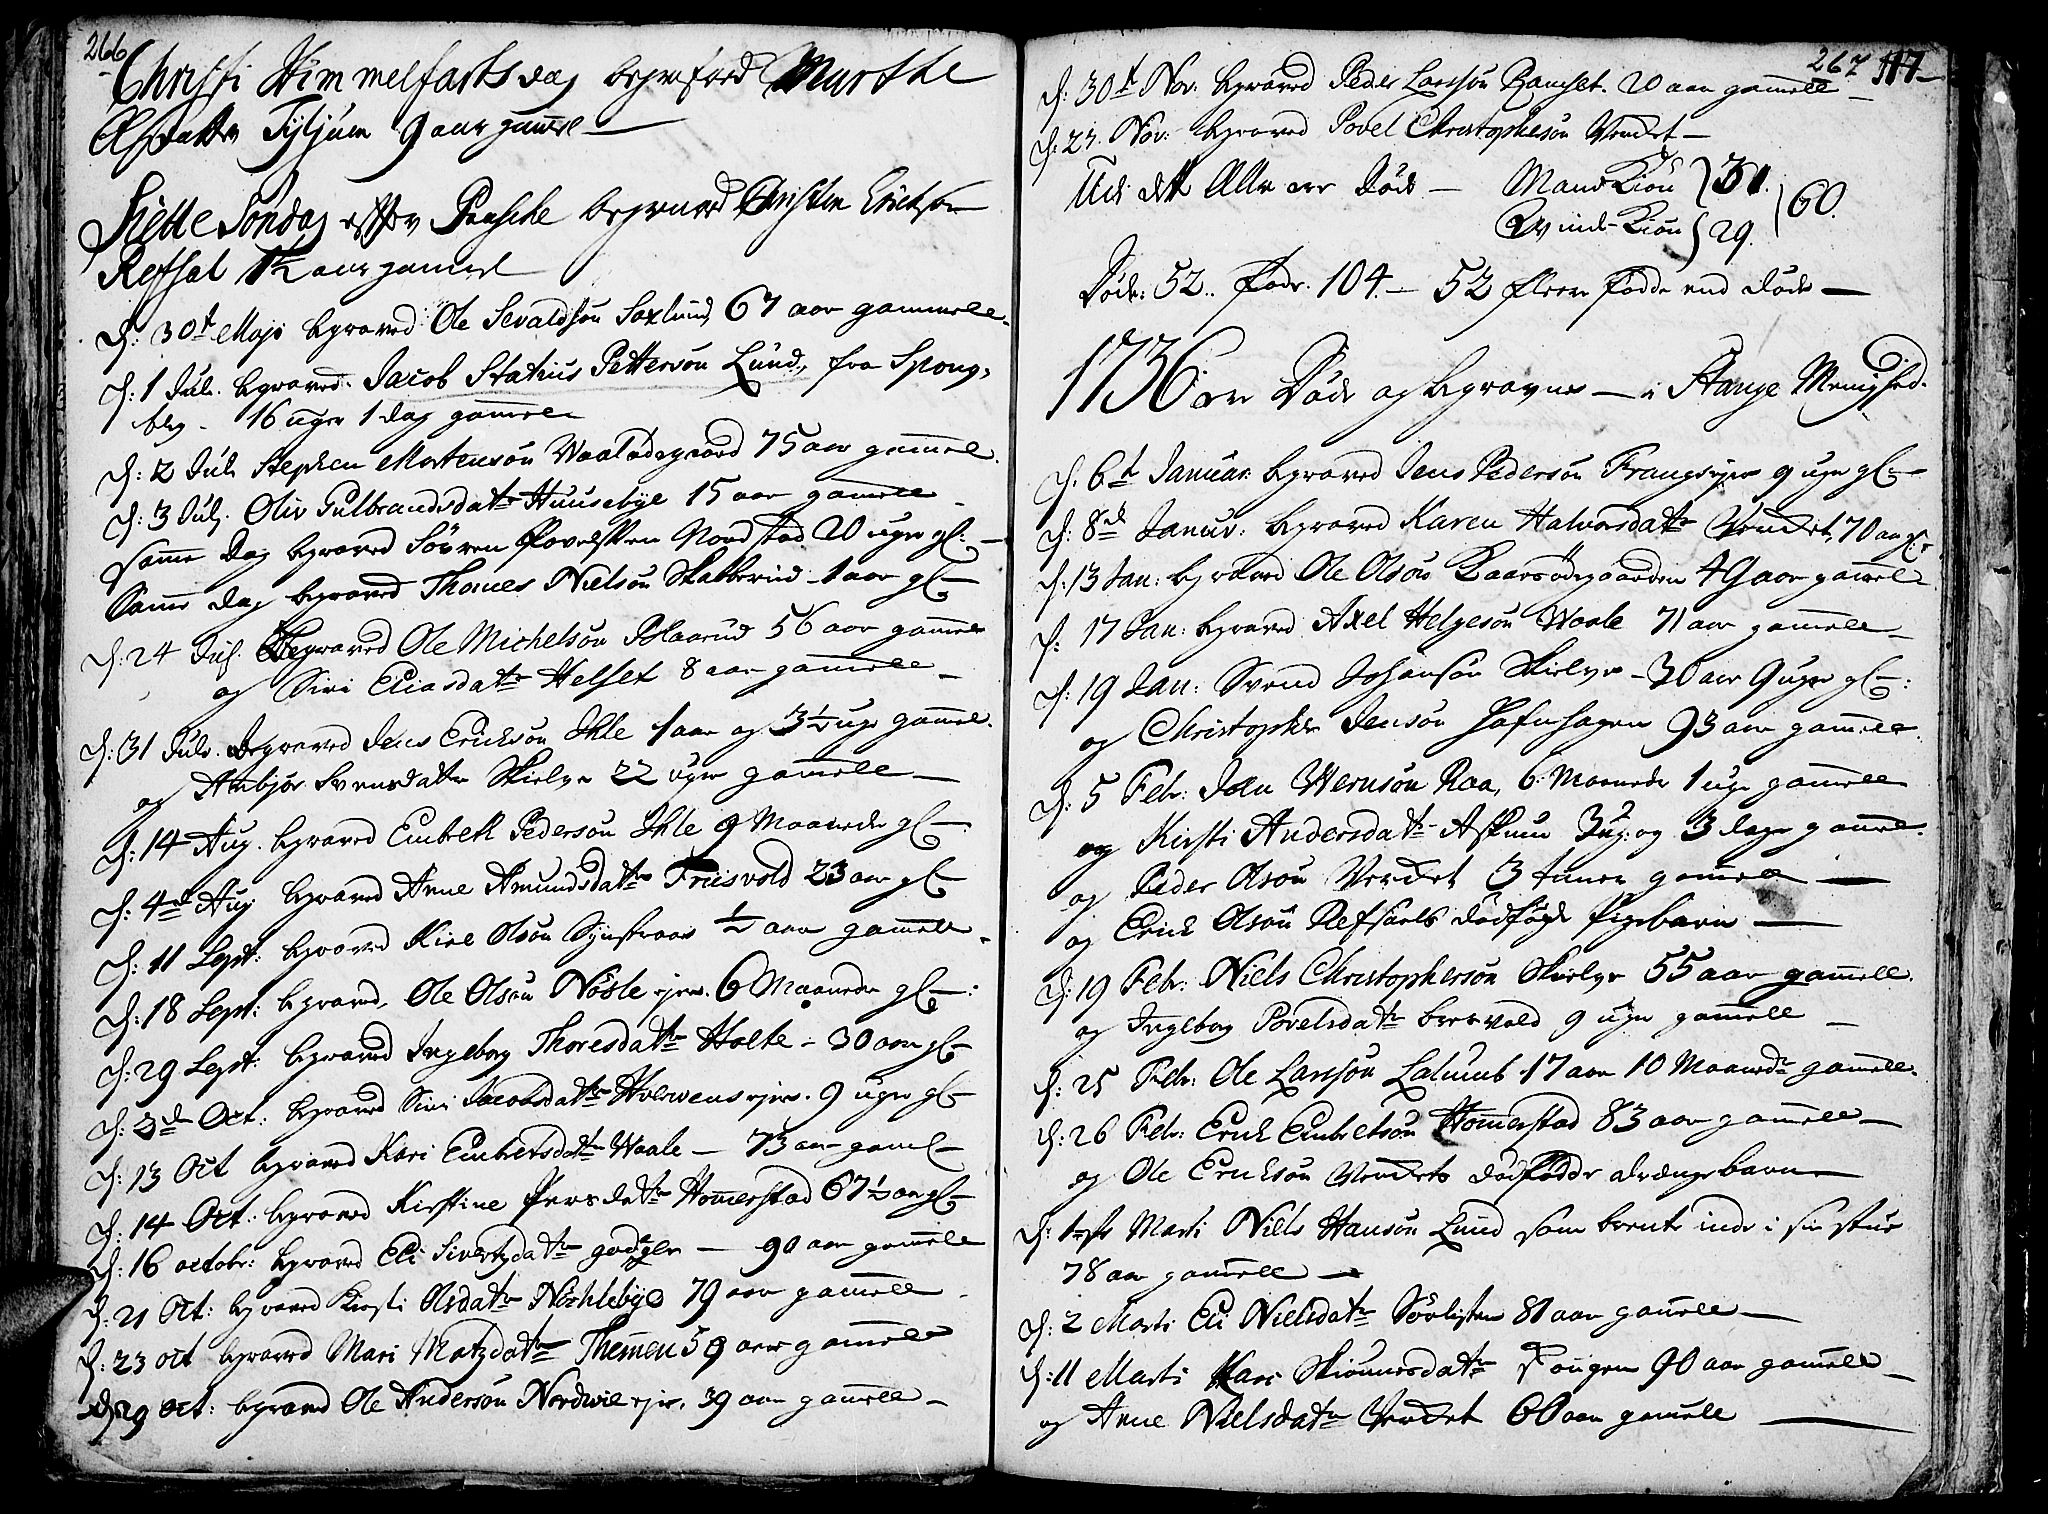 266
Christi Himmelfartsdag begrafved Marthe
Olsdatter Tyljum 9 aar gamel
Siette Söndag effter Paasche begraved Christen Erichsen
Refsal 1½ aar gamel
d: 30t Maji begraved Ole Sevaldsön Saxlund, 67 aar gammell
d: 1 Jul. begraved Jacob Statius Pettersön Lund, fra Spong-
berg. 16 uger 1 dag gamel
d: 2 Jul. Stephen Mortensön Waaladegaard 75 aar gamel.
d: 3 Jul. Oliv Gulbrandsdatr Huusebye 15 aar gamell
samme Dag begraved Sören Povelsen Nordstad 20 uger gl:
Samme dag begraved Thomes Nielsön Skatterud 1 aar gl
d: 24 Jul. Begraved Ole Michelsön Blaarud 56 aar gamel
og Siri Eliasdatr Helset 8 aar gamell
d: 31 Jul. begraved Jens Ericksön Ihle 1 aar og 3½ uge gamel.
og Anbjör Svensdatr Skielve 22 uger gamell
d: 14 Aug. begraved Embrett Pedersön Ihle 9 Maaneder gl
d: 4de Aug begraved Anne Amundsdatr Friisvold 23 aar gl
d: 11 Sept: begraved Olsön ½ aar gamell
d: 18 Sept: begraved Ole Olsön Nösle ejer. 6 Maaneder gl:
d: 29 Sept: begraved Ingeborg Thoresdatr Holte 30 aar gl
d: 3de Oct: begraved Siri Jacobsdatr Hverwens ejer. 9 uger gl
d: 13 Oct begraved Kari Embretsdatr Waale 73 aar gaml
d: 14 Oct: begraved Kirstine Iversdatr Homerstad 67½ aar gl
d: 16 octobr: begraved Eli Sivertzdatr 90 aar gamell
d: 21 Oct: begraved Kirsti Olsdatr Nöchlebye 79 aar gamell
d: 23 oct begraved Mari Matzdatr Themen 59 aar gamell
d: 29 oct: begraved Ole Andersön Nordwie ejer. 39 aar gamell
267 117
d: 30t Nov: begraved Peder Larssön Ramset. 20 aar gamell
d: 23 Nov: begraved Povel Christophersön Verdet
Ud dett Alle ere döde Mand Kiön 31.
Qvinde-Kiön 29. 60.
Döde: 52.. Föde. 104. 52 fleere födde end döde
1736 ere Döde og begravne i Stange Menighed.
d. 6t Januar: begraved Jens Pedersön Frangs ejer 9 uger gl
d: 8de Januar: begraved Karen Halvorsdatr Verdet 70 aar gl
d: 13 Jan: begraved Ole Olsön Baarsödegaarden 49 aar gamel
d: 17 Jan: begraved Axel Helgesön Waale 71 aar gamell
d: 19 Jan: Svend Johansön Skielve 30 aar 9 uger gl:
og Christopher Jensön Hafnhagen 93 aar gamell
d: 5 Febr: Joen Wernsön Raa, 6 Maaneder 1 uge gamell
og Kirsti Andersdatr Askum 3 ug: og 3 dage gamel.
og Peder Olsön Verdet 3 timer gamell
og Erick Olsön Refsaels dödfögte Pigebarn
d: 19 Febr: Niels Christophersön Skielve 55 aar gamell.
og Ingeborg Povelsdatr bresvold 9 uger gamell
d: 25 Febr: Ole Larssön Lalumb 17 aar 10 Maaneder gamell.
d: 26 Febr: Erick Embretsön Homerstad 83 aar gamell
og Ole Ericksön Verdets dödfödde drænge barn
d: 1ste Marti Niels Hansön Lund som brente inde i sin stue
78 aar gamell
d: 2 Marti Eli Nielsdatr Sörlisten 81 aar gamell
d: 11 Marti Kari Skiönnersdatr 90 aar gamell
og Anne Nielsdatr Verdet 60 aar gamell